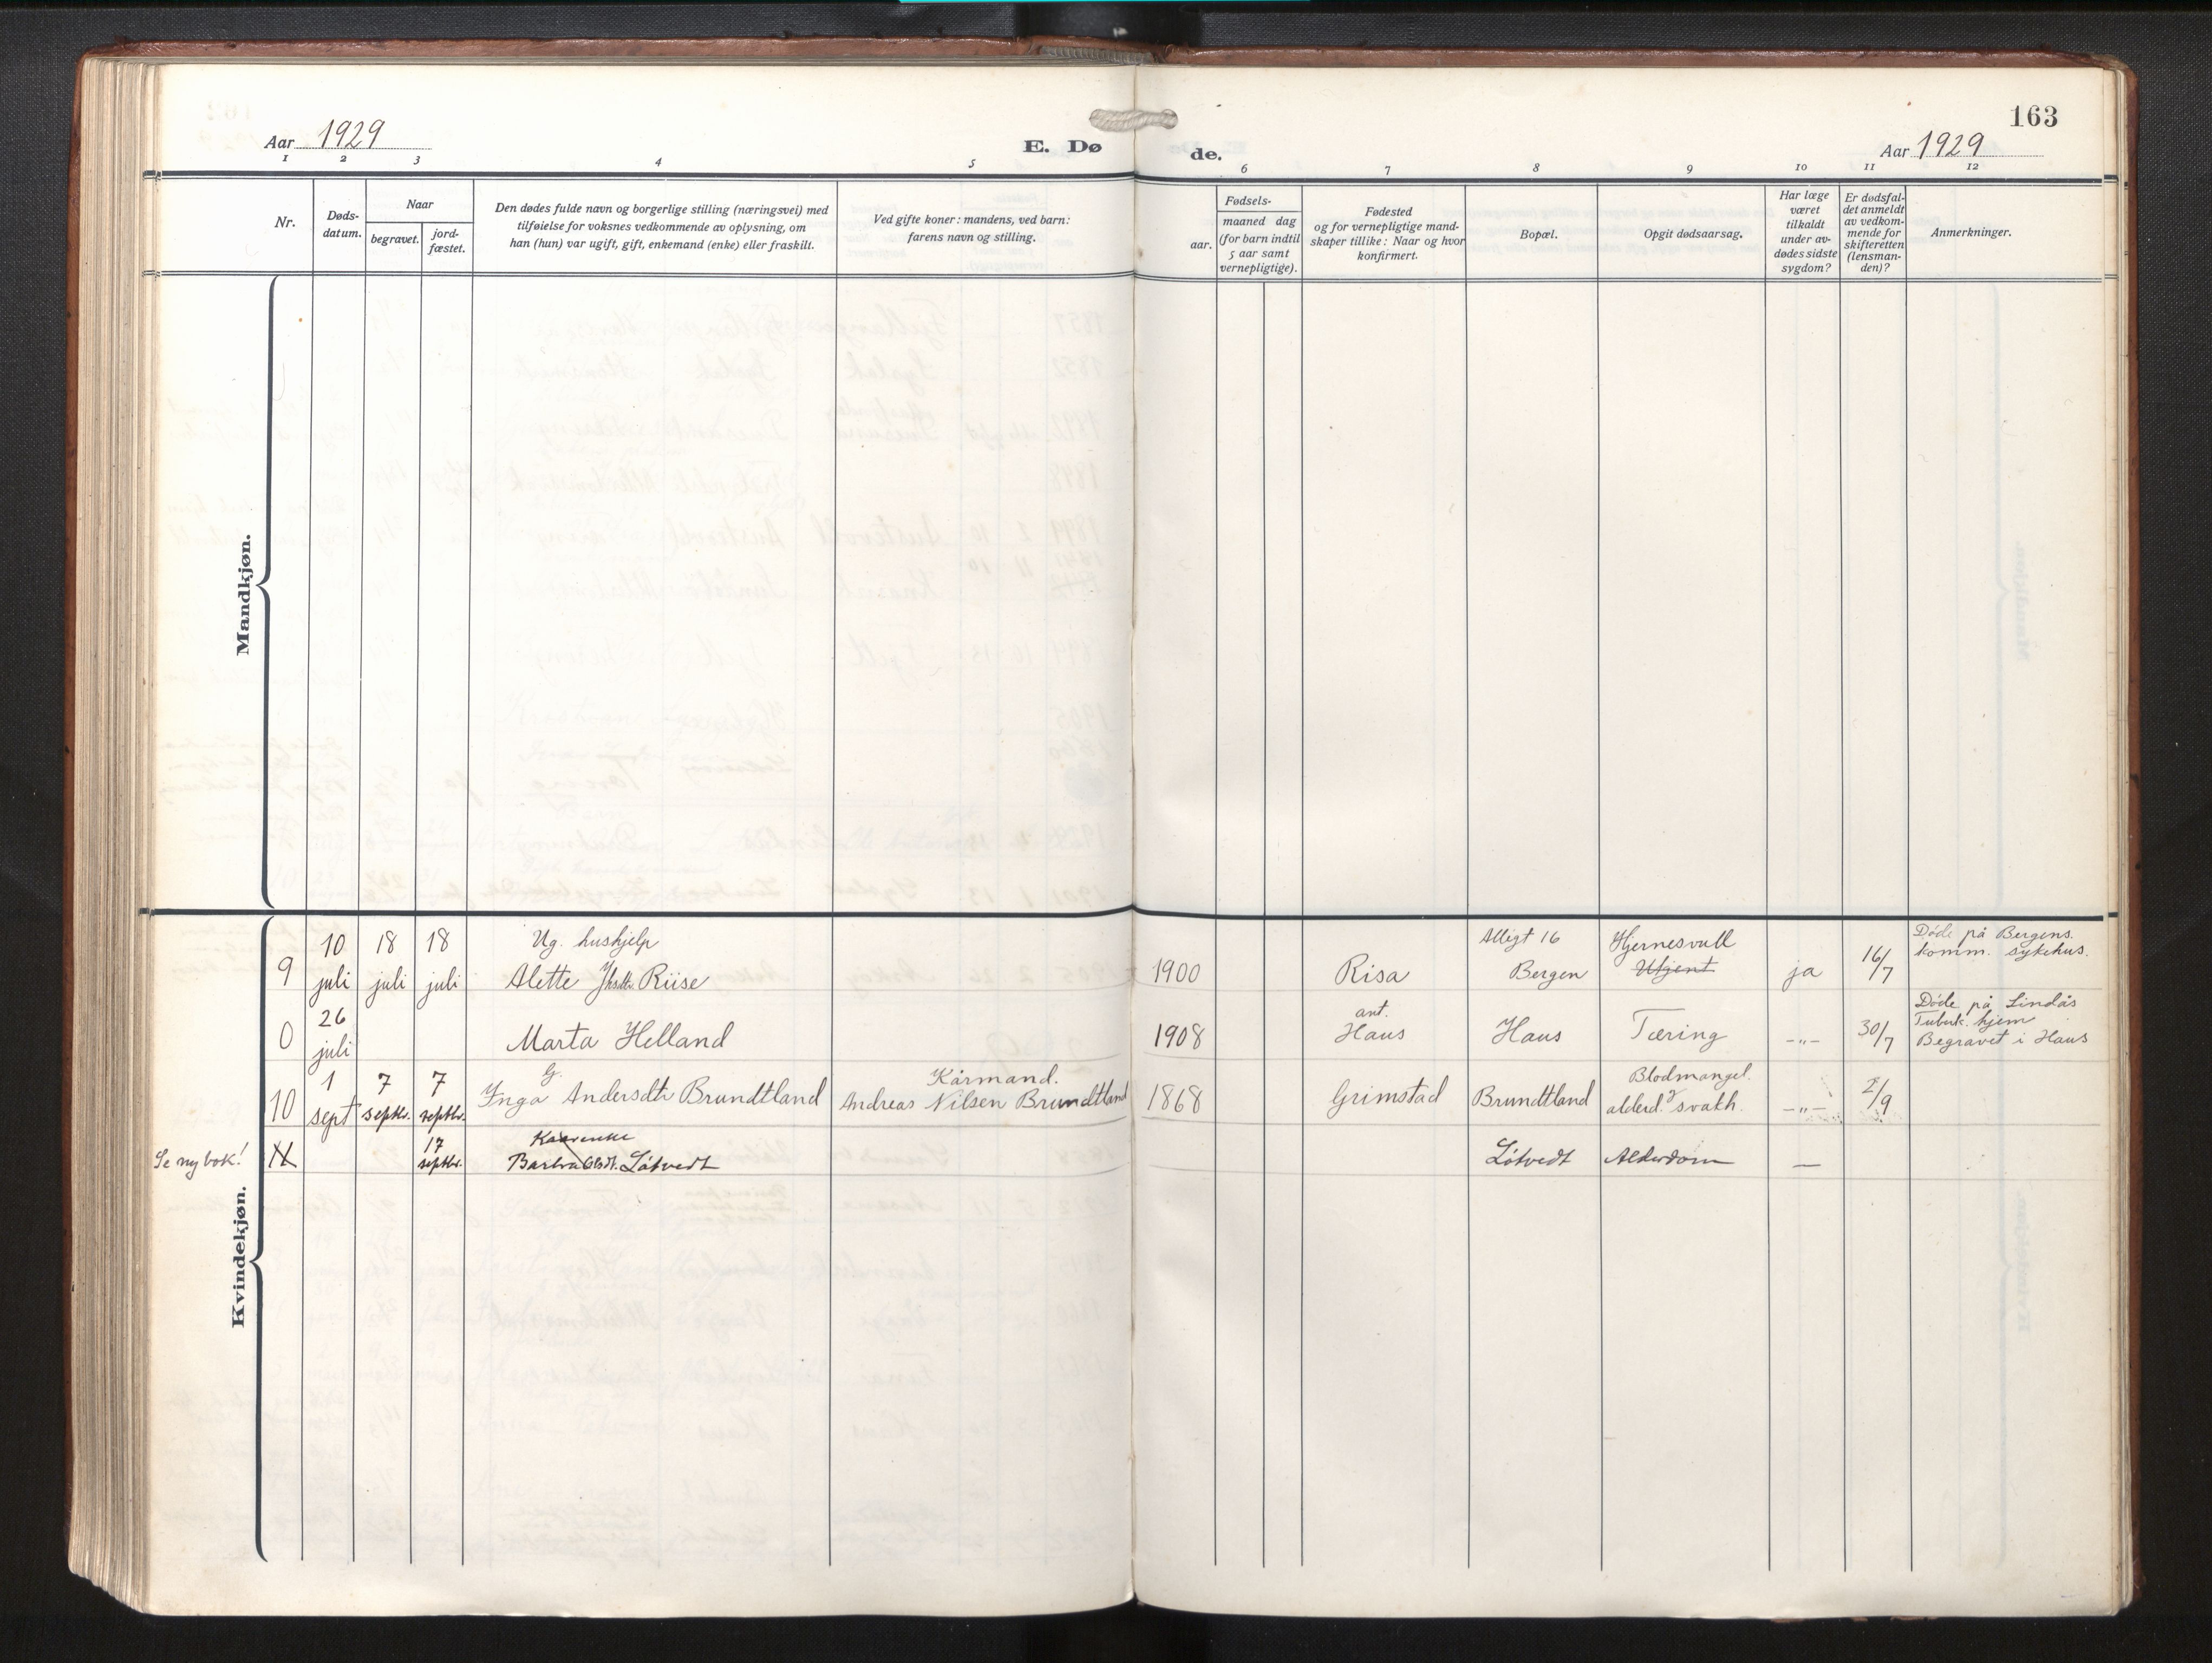 163
Aar 1929
E. Dø
de.
Aar 1929
1 2 3 4 5 6 7 8 9 10 11 12
Nr.
Døds-
datum.
Naar
begravet.
jord-
fæstet.
Den dødes fulde navn og borgerlige stilling (næringsvei) med
tilføielse for voksnes vedkommende av oplysning, om
han (hun) var ugift, gift, enkemand (enke) eller fraskilt.
Ved gifte koner: mandens, ved barn:
farens navn og stilling.
Fødsels-
aar.
maaned dag
(for barn indtil
5 aar samt
vernepligtige).
Fødested
og for vernepligtige mand-
skaper tillike: Naar og hvor
konfirmert.
Bopæl.
Opgit dødsaarsag.
Har læge
været
tilkaldt
under av-
dødes sidste
sygdom?
Er dødsfal-
det anmeldt
av vedkom-
mende for
skifteretten
(lensman-
den)?
Anmerkninger.
Mandkjøn.
Kvindekjøn.
9
10
juli
18
juli
18
juli
Ug. hushjelp
Alette Riise
1900
Risa
Allégt 16
Bergen
Hjernesvull
ja
16/7
Døde på Bergens
komm. sykehus.
0
26
juli
Marta Helland
1908
ant.
Haus
Haus
Tæring
-"-
30/7
Døde på Lindås
Tuberk. hjem
Begravet i Haus
10
1
sept
7
septbr.
7
septbr.
G.
Inga Andersdtr Brundtland
Kårmand.
Andreas Nilsen Brundtland
1868
Grimstad
Brundtland
Blodmangel.
alderd. svakh.
-"-
2/9
Se ny bok!
11
17
septbr.
Kaarenke
Barbra Løtvedt
Løtvedt
Alderdom
—